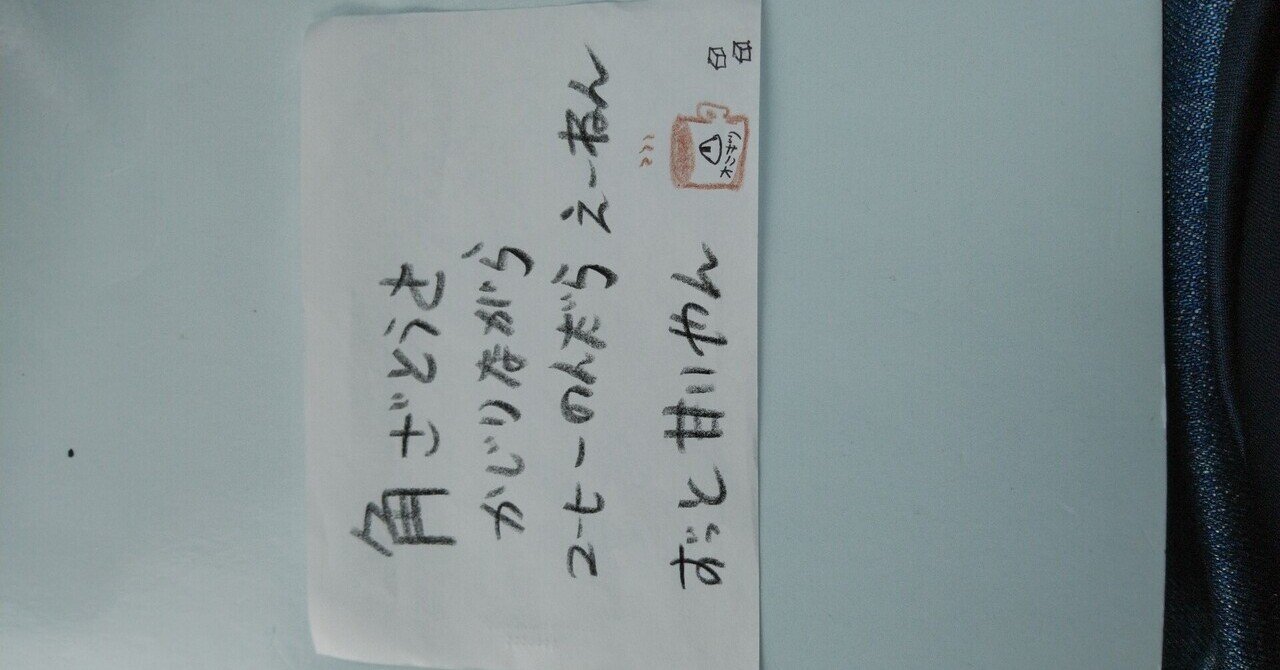 角ざとうさ
かじりながら
コーヒーのんだらえーねん
ずっと甘いやん